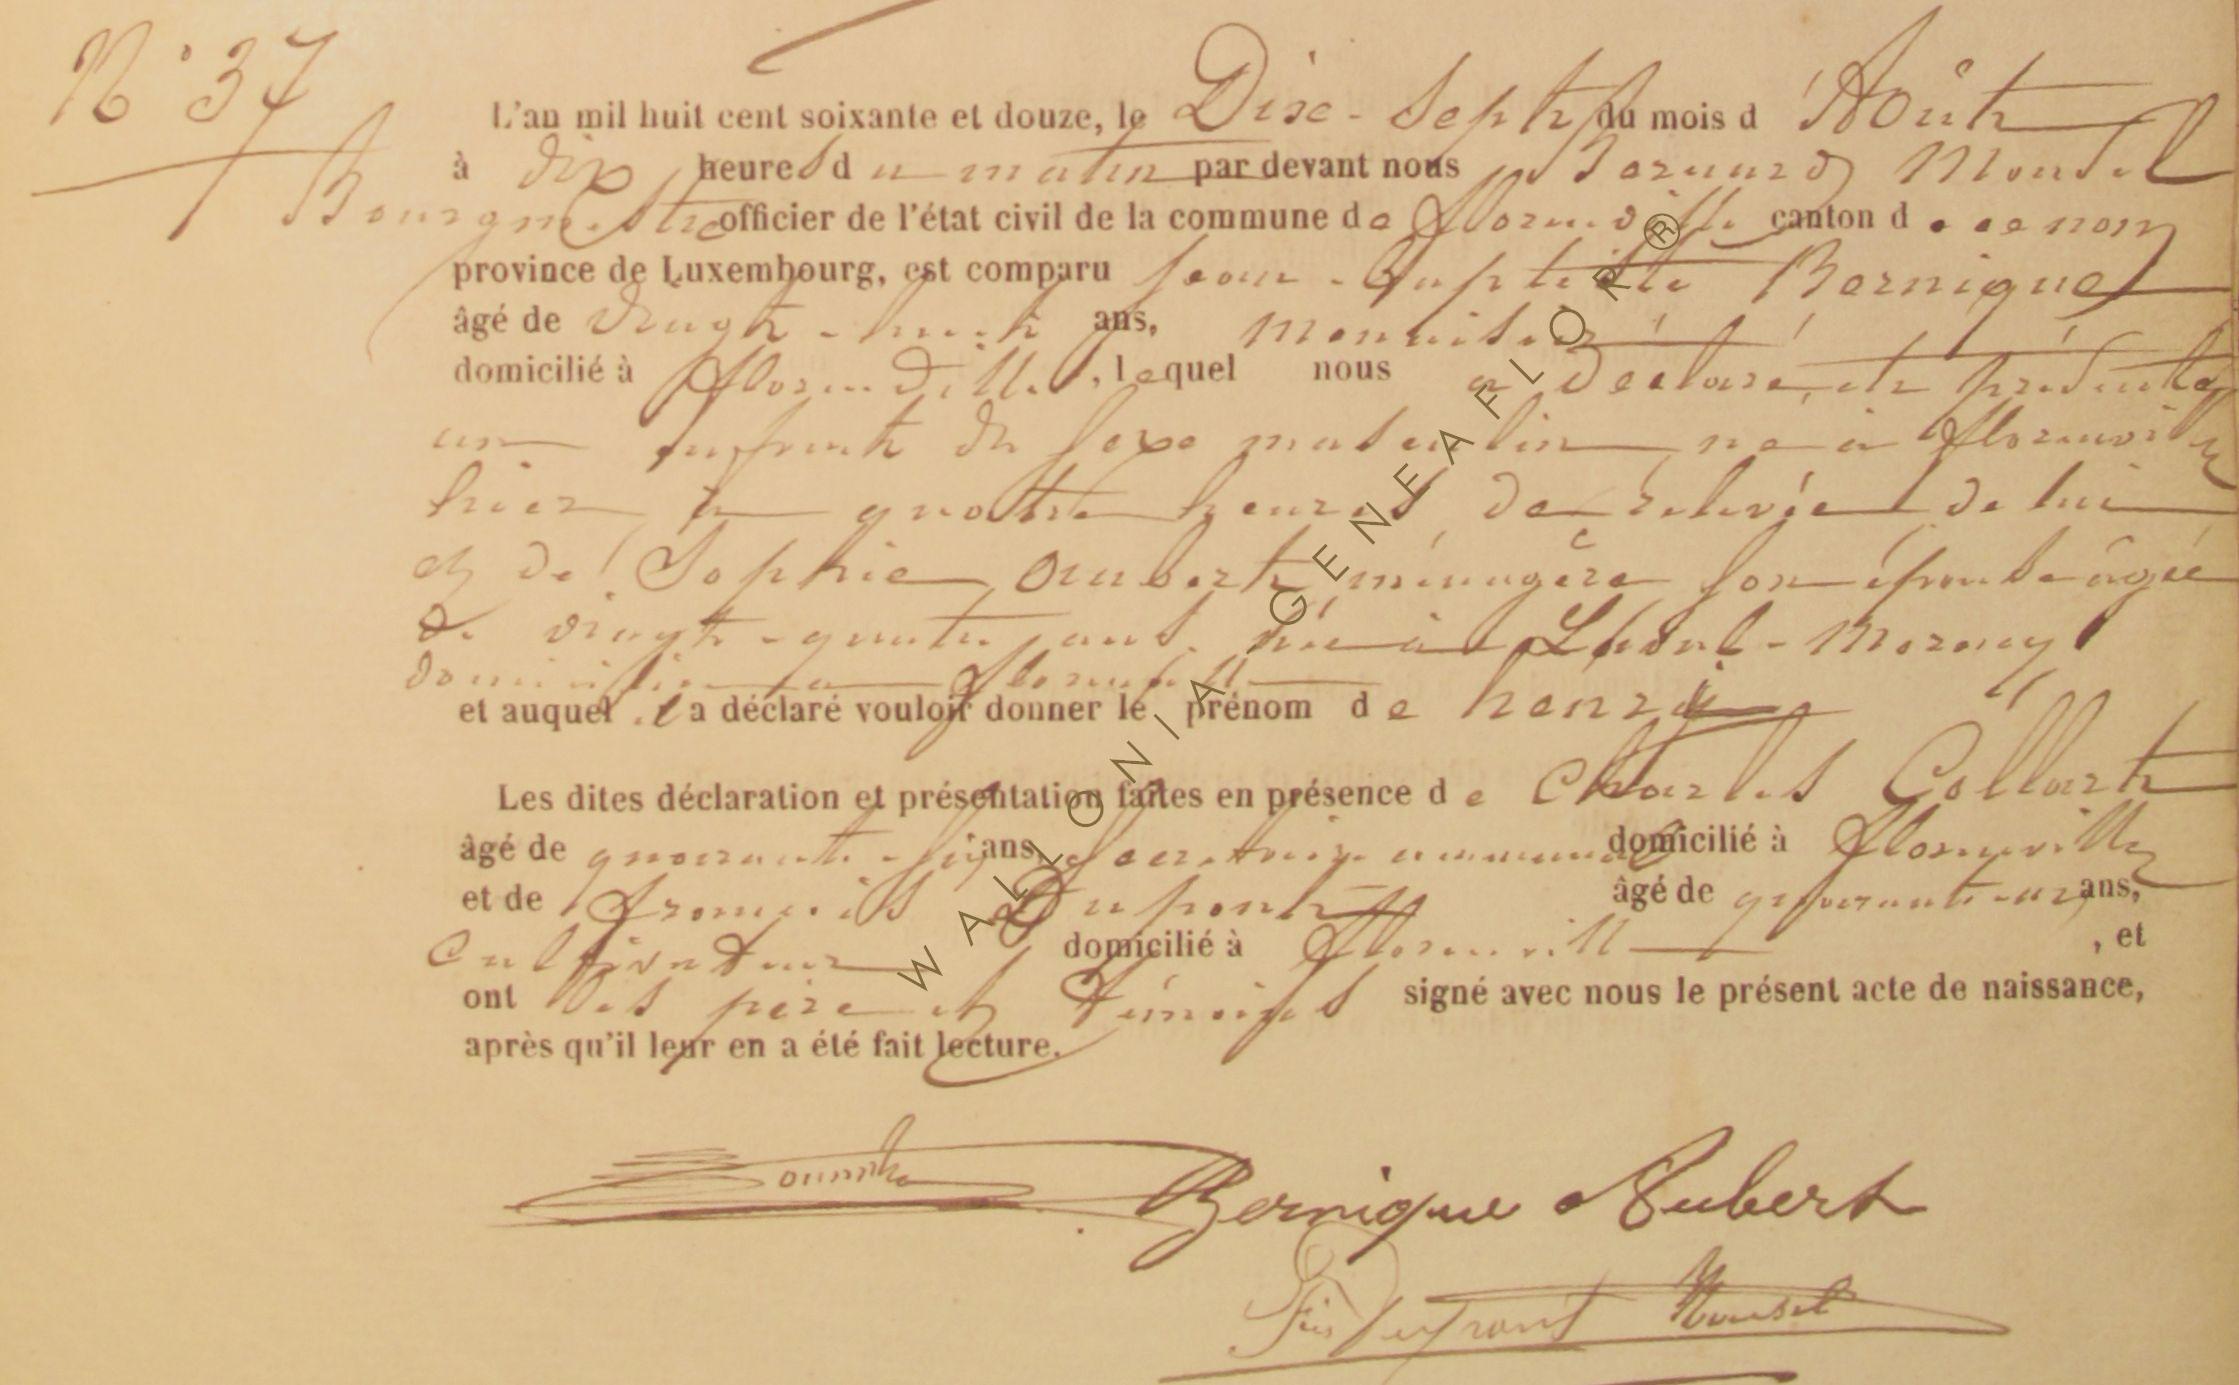 N° 37
L'an mil huit cent soixante et douze, le Dixe-Sept du mois d'Août
à dix heures du matin par devant nous Bernard Mousel
Bourgmestre officier de l'état civil de la commune de florenville canton de ce nom
province de Luxembourg, est comparu Jean-Baptiste Bernique
âgé de Vingt-huit ans, Menuisier
domicilié à florenville, lequel nous a déclaré et présenté
un enfant du sexe masculin né à florenville
hier à quatre heures de relevée de lui
et de Sophie Aubert ménagère son épouse âgée
de vingt-quatre ans née à
domiciliée à florenville
et auquel il a déclaré vouloir donner le prénom de henry
Les dites déclaration et présentation faites en présence de Charles Collart
âgé de quarante-six ans, Secretaire communal domicilié à florenville
et de françois Dupont âgé de quarante-un ans,
Cultivateur domicilié à florenville , et
ont les père et témoins signé avec nous le présent acte de naissance,
après qu'il leur en a été fait lecture.
Bernique Aubert
Mousel
WALLONIA GENEAFLOR R ®